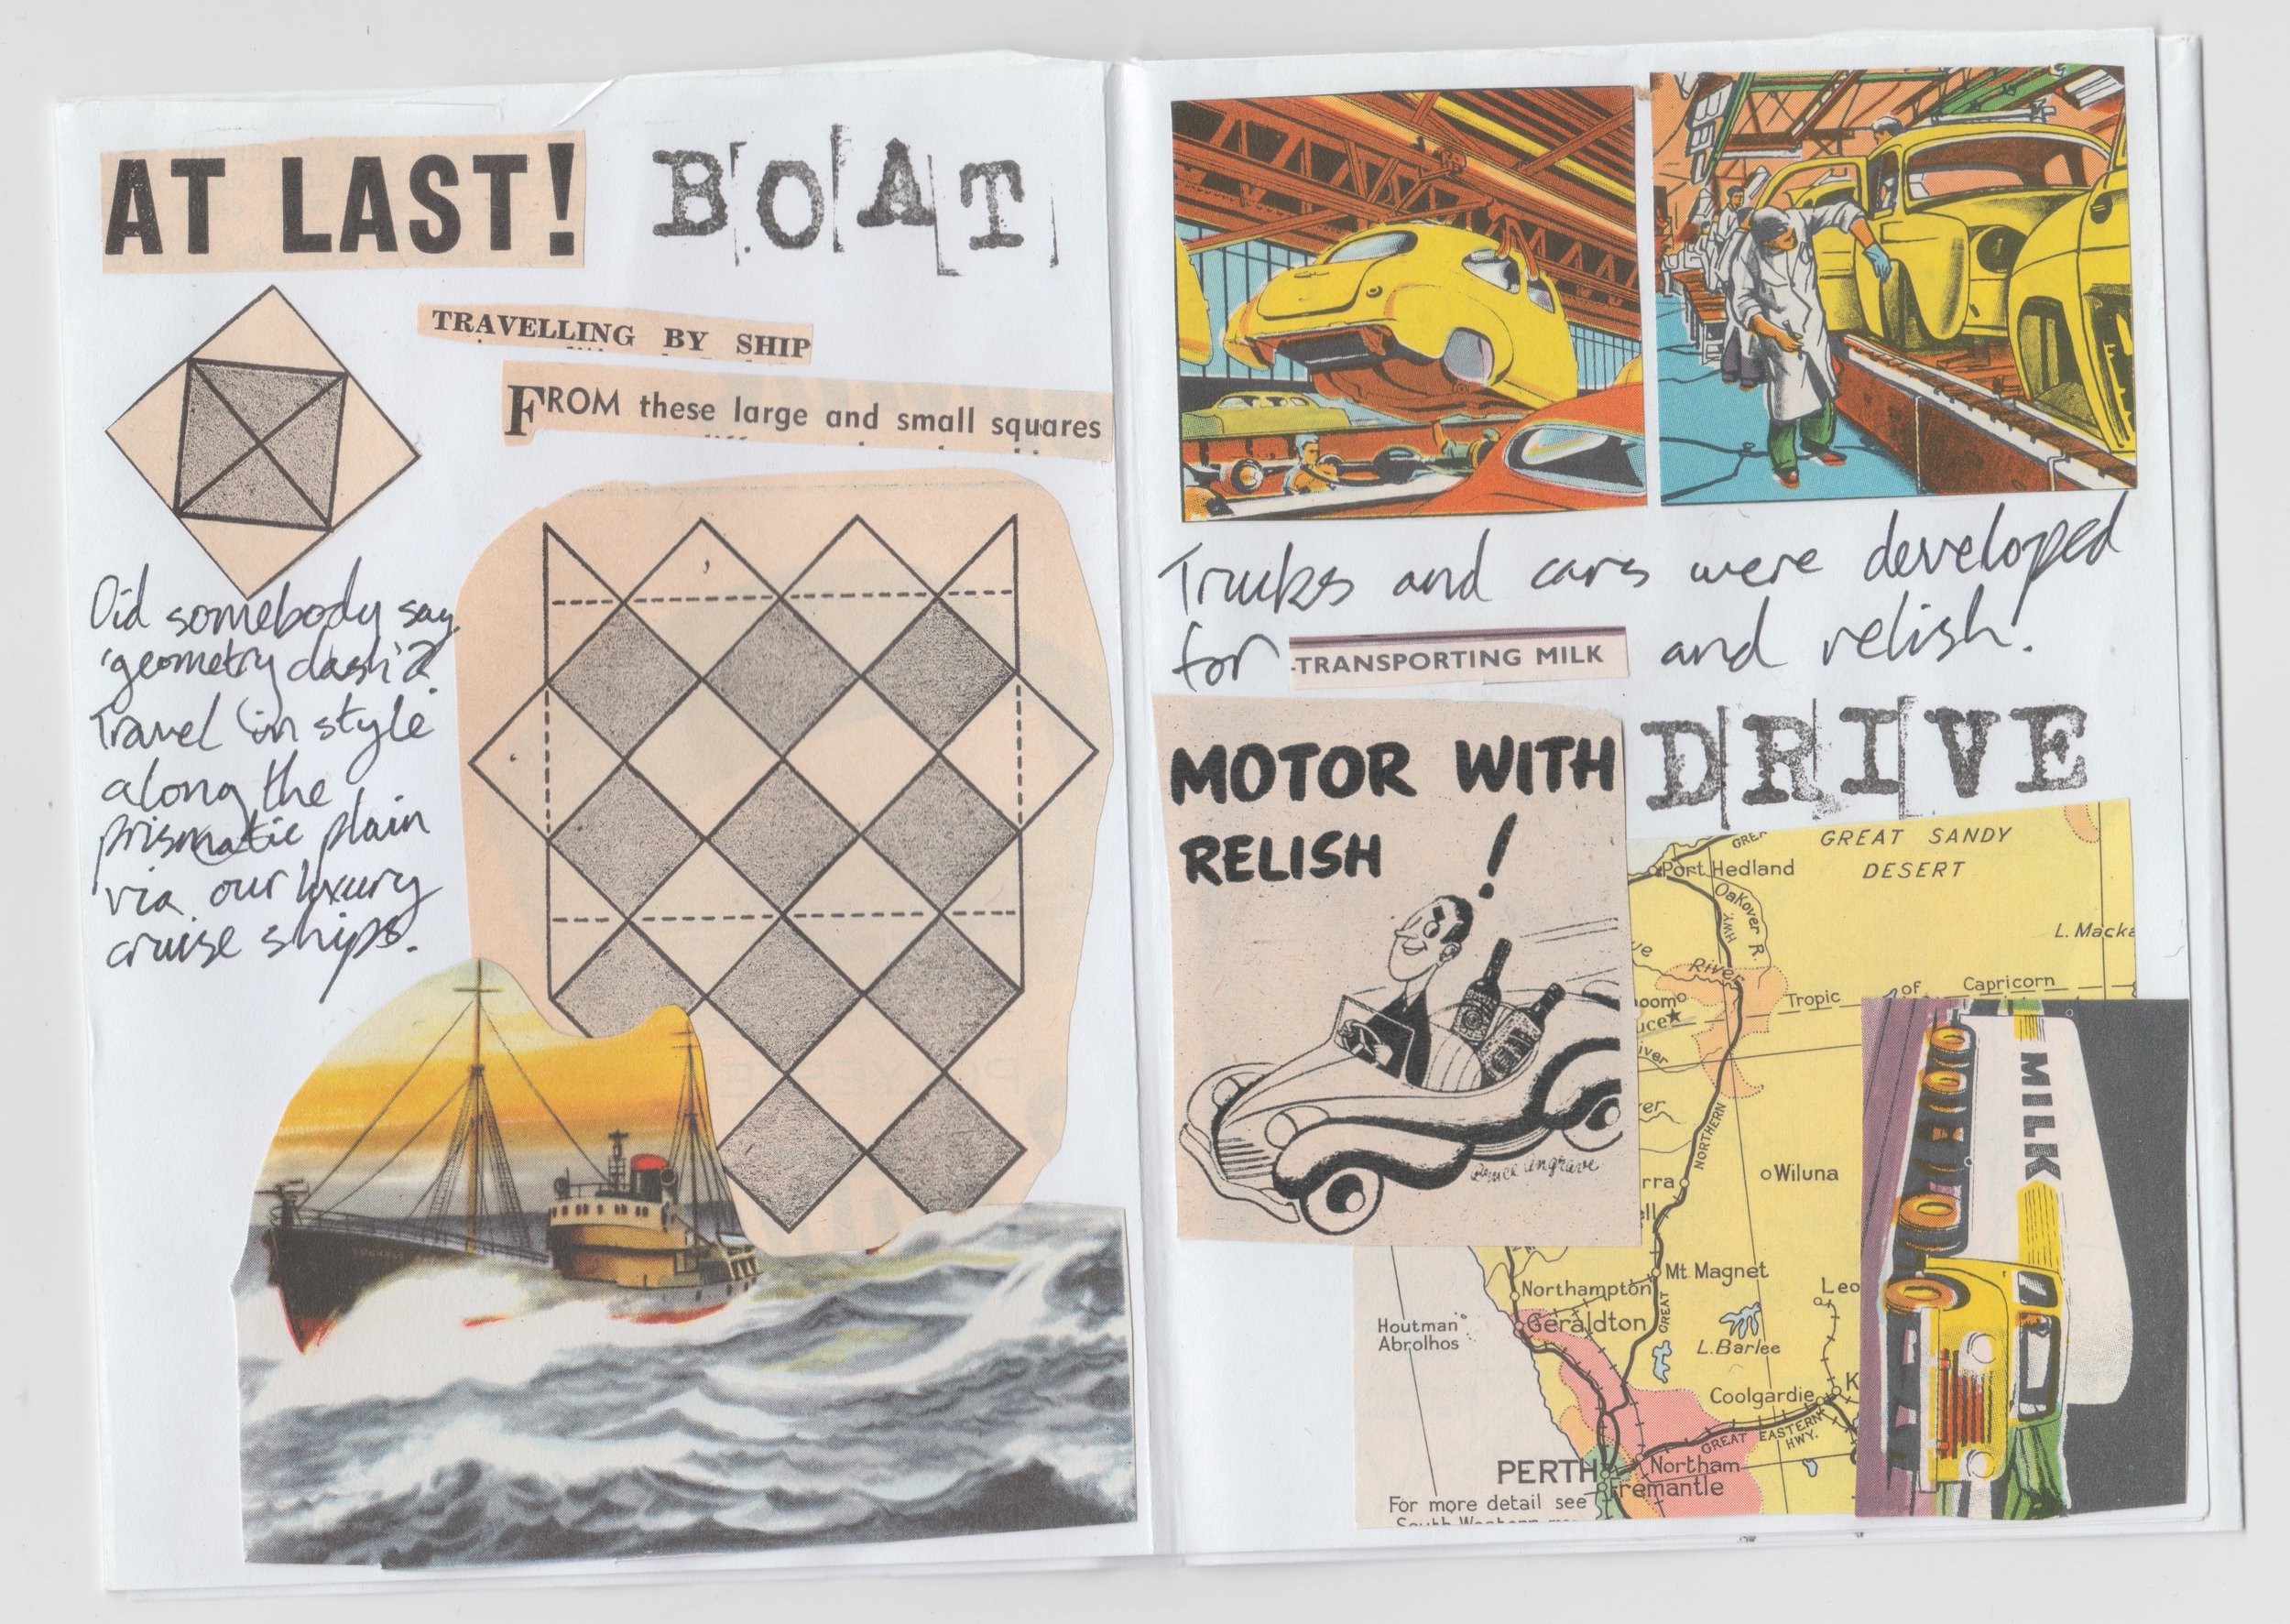 AT LAST!
BOAT
TRAVELLING BY SHIP
FROM these large and small squares
Did somebody say
'geometry dash'?
Travel in style
along the
prismatic plain
via our luxury
cruise ships.
Trucks and cars were developed
for TRANSPORTING MILK and relish!
DRIVE
MOTOR WITH
RELISH!
GREAT SANDY
DESERT
Port Hedland
Oakover R.
HWY.
L. Macka
River
Tropic of Capricorn
NORTHERN
Wiluna
Mt. Magnet
GREAT
Northampton
Geraldton
Houtman
Abrolhos
Leo
L. Barlee
Coolgardie
K
GREAT EASTERN
HWY.
PERTH
Northam
Fremantle
For more detail see
MILK